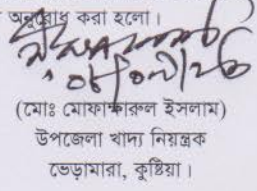 অনুরোধ করা হলো।
(মোঃ মোফাক্ষারুল ইসলাম)
উপজেলা খাদ্য নিয়ন্ত্রক
ভেড়ামারা, কুষ্টিয়া।